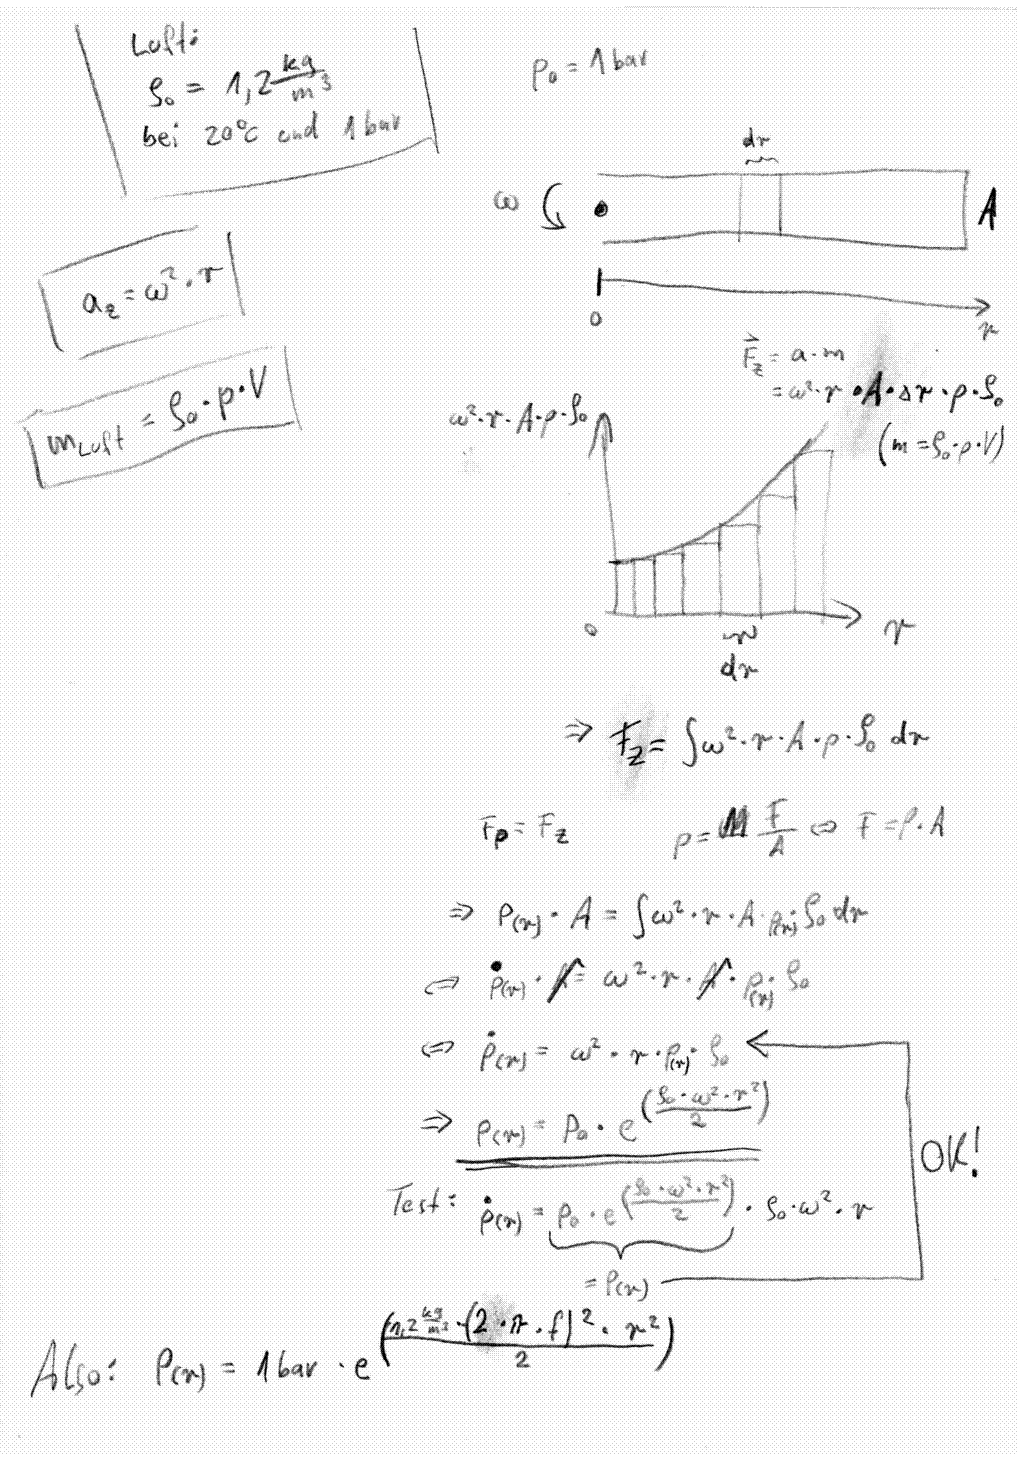 Luft:
ρ₀ = 1,2 kg/m³
bei 20°C und 1 bar
p₀ = 1 bar
dr
ω
A
0
r
a_z = ω² · r
m_Luft = ρ₀ · p · V
F⃗_z = a · m
= ω² · r · A · Δr · p · ρ₀
(m = ρ₀ · p · V)
ω² · r · A · p · ρ₀
0
r
dr
⇒ F_z = ∫ω² · r · A · p · ρ₀ dr
F_p = F_z
p = F/A ⇔ F = p · A
⇒ p(r) · A = ∫ω² · r · A · p(r) · ρ₀ dr
⇔ ṗ(r) · A = ω² · r · A · p(r) · ρ₀
⇔ ṗ(r) = ω² · r · p(r) · ρ₀
⇒ p(r) = p₀ · e^((ρ₀ · ω² · r²)/2)
OK!
Test: ṗ(r) = p₀ · e^((ρ₀ · ω² · r²)/2) · ρ₀ · ω² · r
= p(r)
Also: p(r) = 1 bar · e^((1,2 kg/m³ · (2 · π · f)² · r²)/2)